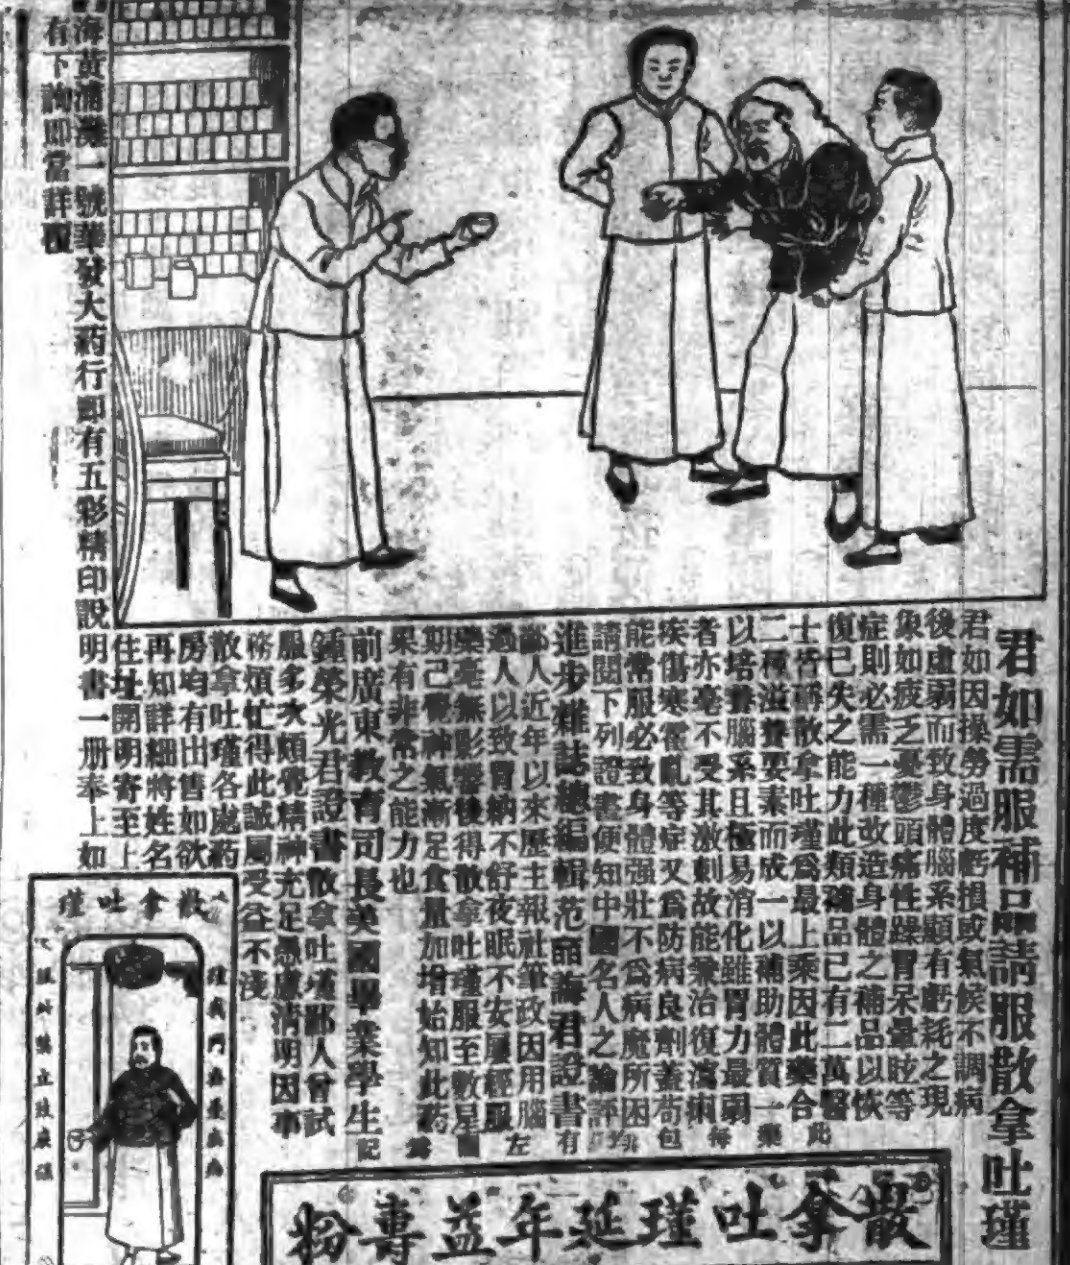 君如需服補品請服散拿吐瑾
君如因操勞過度虧損或氣候不調病
後虛弱而致身體腦系顯有虧耗之現
象如疲乏憂鬱頭痛性躁胃呆暈眩等
症則必需一種改造身體之補品以恢
復已失之能力此類補品已有二萬醫
士皆稱散拿吐瑾爲最上乘因此藥合
二種滋養要素而成一以補助體質一
以培養腦系且極易消化雖胃力最弱
者亦毫不受其激刺故能兼治復瀉痢
疾傷寒霍亂等症又爲防病良劑蓋苟
能常服必致身體强壯不爲病魔所困
請閱下列證書便知中國名人之論評
進步雜誌總編輯范誨君證書
鄙人近年以來歷主報社筆政因用腦
過人以致胃納不舒夜眠不安屢經服
藥毫無影響後得散拿吐瑾服至數星
期已覺神氣漸足食量加增始知此药
果有非常之能力也
前廣東教育司長美國畢業學生
鍾榮光君證書散拿吐瑾鄙人曾試
服多次頗覺精神充足思慮清明因事
務煩忙得此誠屬受益不淺
散拿吐瑾各處药
房均有出售如欲
再知詳細將姓名
住址開明寄至上
海黃浦灘一號華發大药行即有五彩精印說
明書一册奉上如
有下詢即當詳覆
此
藥
每
包
有
左
圖
爲
記
散拿吐瑾延年益壽粉
散拿吐瑾